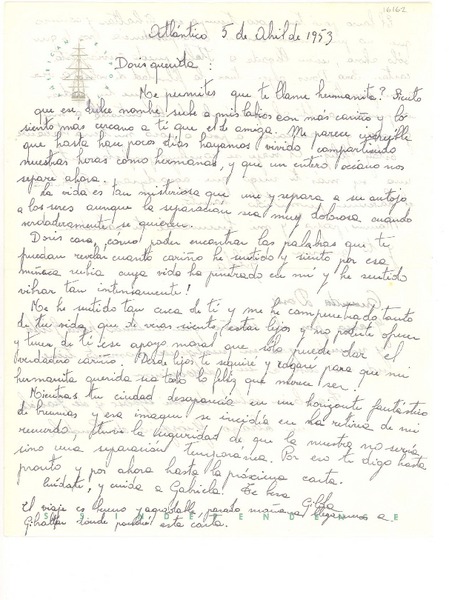 16162
Atlántico 5 de Abril de 1953
Doris querida:
Me permites que te llame hermanita? Siento
que ese dulce nombre sube a mis labios con más cariño y lo
siento más cercano a ti que el de amiga. Me parece increíble
que hasta hace pocos días hayamos vivido compartiendo
nuestras horas como hermanas, y que un entero océano nos
separe ahora.
La vida es tan misteriosa que une y separa a su antojo
a los seres aunque la separación sea muy dolorosa cuando
verdaderamente se quieren.
Doris cara, cómo poder encontrar las palabras que te
puedan revelar cuanto cariño he sentido y siento por esa
muñeca rubia cuya vida ha penetrado en mí y he sentido
vibrar tan intensamente!
Me he sentido tan cerca de ti y me he compenetrado tanto
de tu vida, que de veras siento estar lejos y no poderte ofrecer
y tener de ti ese apoyo moral que sólo puede dar el
verdadero cariño. Desde lejos te seguiré y rogaré para que mi
hermanita querida sea todo lo feliz que merece ser.
Mientras tu ciudad desaparecía en un horizonte fantástico
de brumas y esa imagen se incidía en la retina de mi
recuerdo, tuve la seguridad de que la nuestra no sería
sino una separación temporanea. Por eso te digo hasta
pronto y por ahora hasta la próxima carta.
Cuídate, y cuida a Gabriela. Te besa
Gilda
El viaje es bueno y agradable, pasado mañana llegaremos a
Gibraltar donde pondré esta carta.
INDEPENDENCE